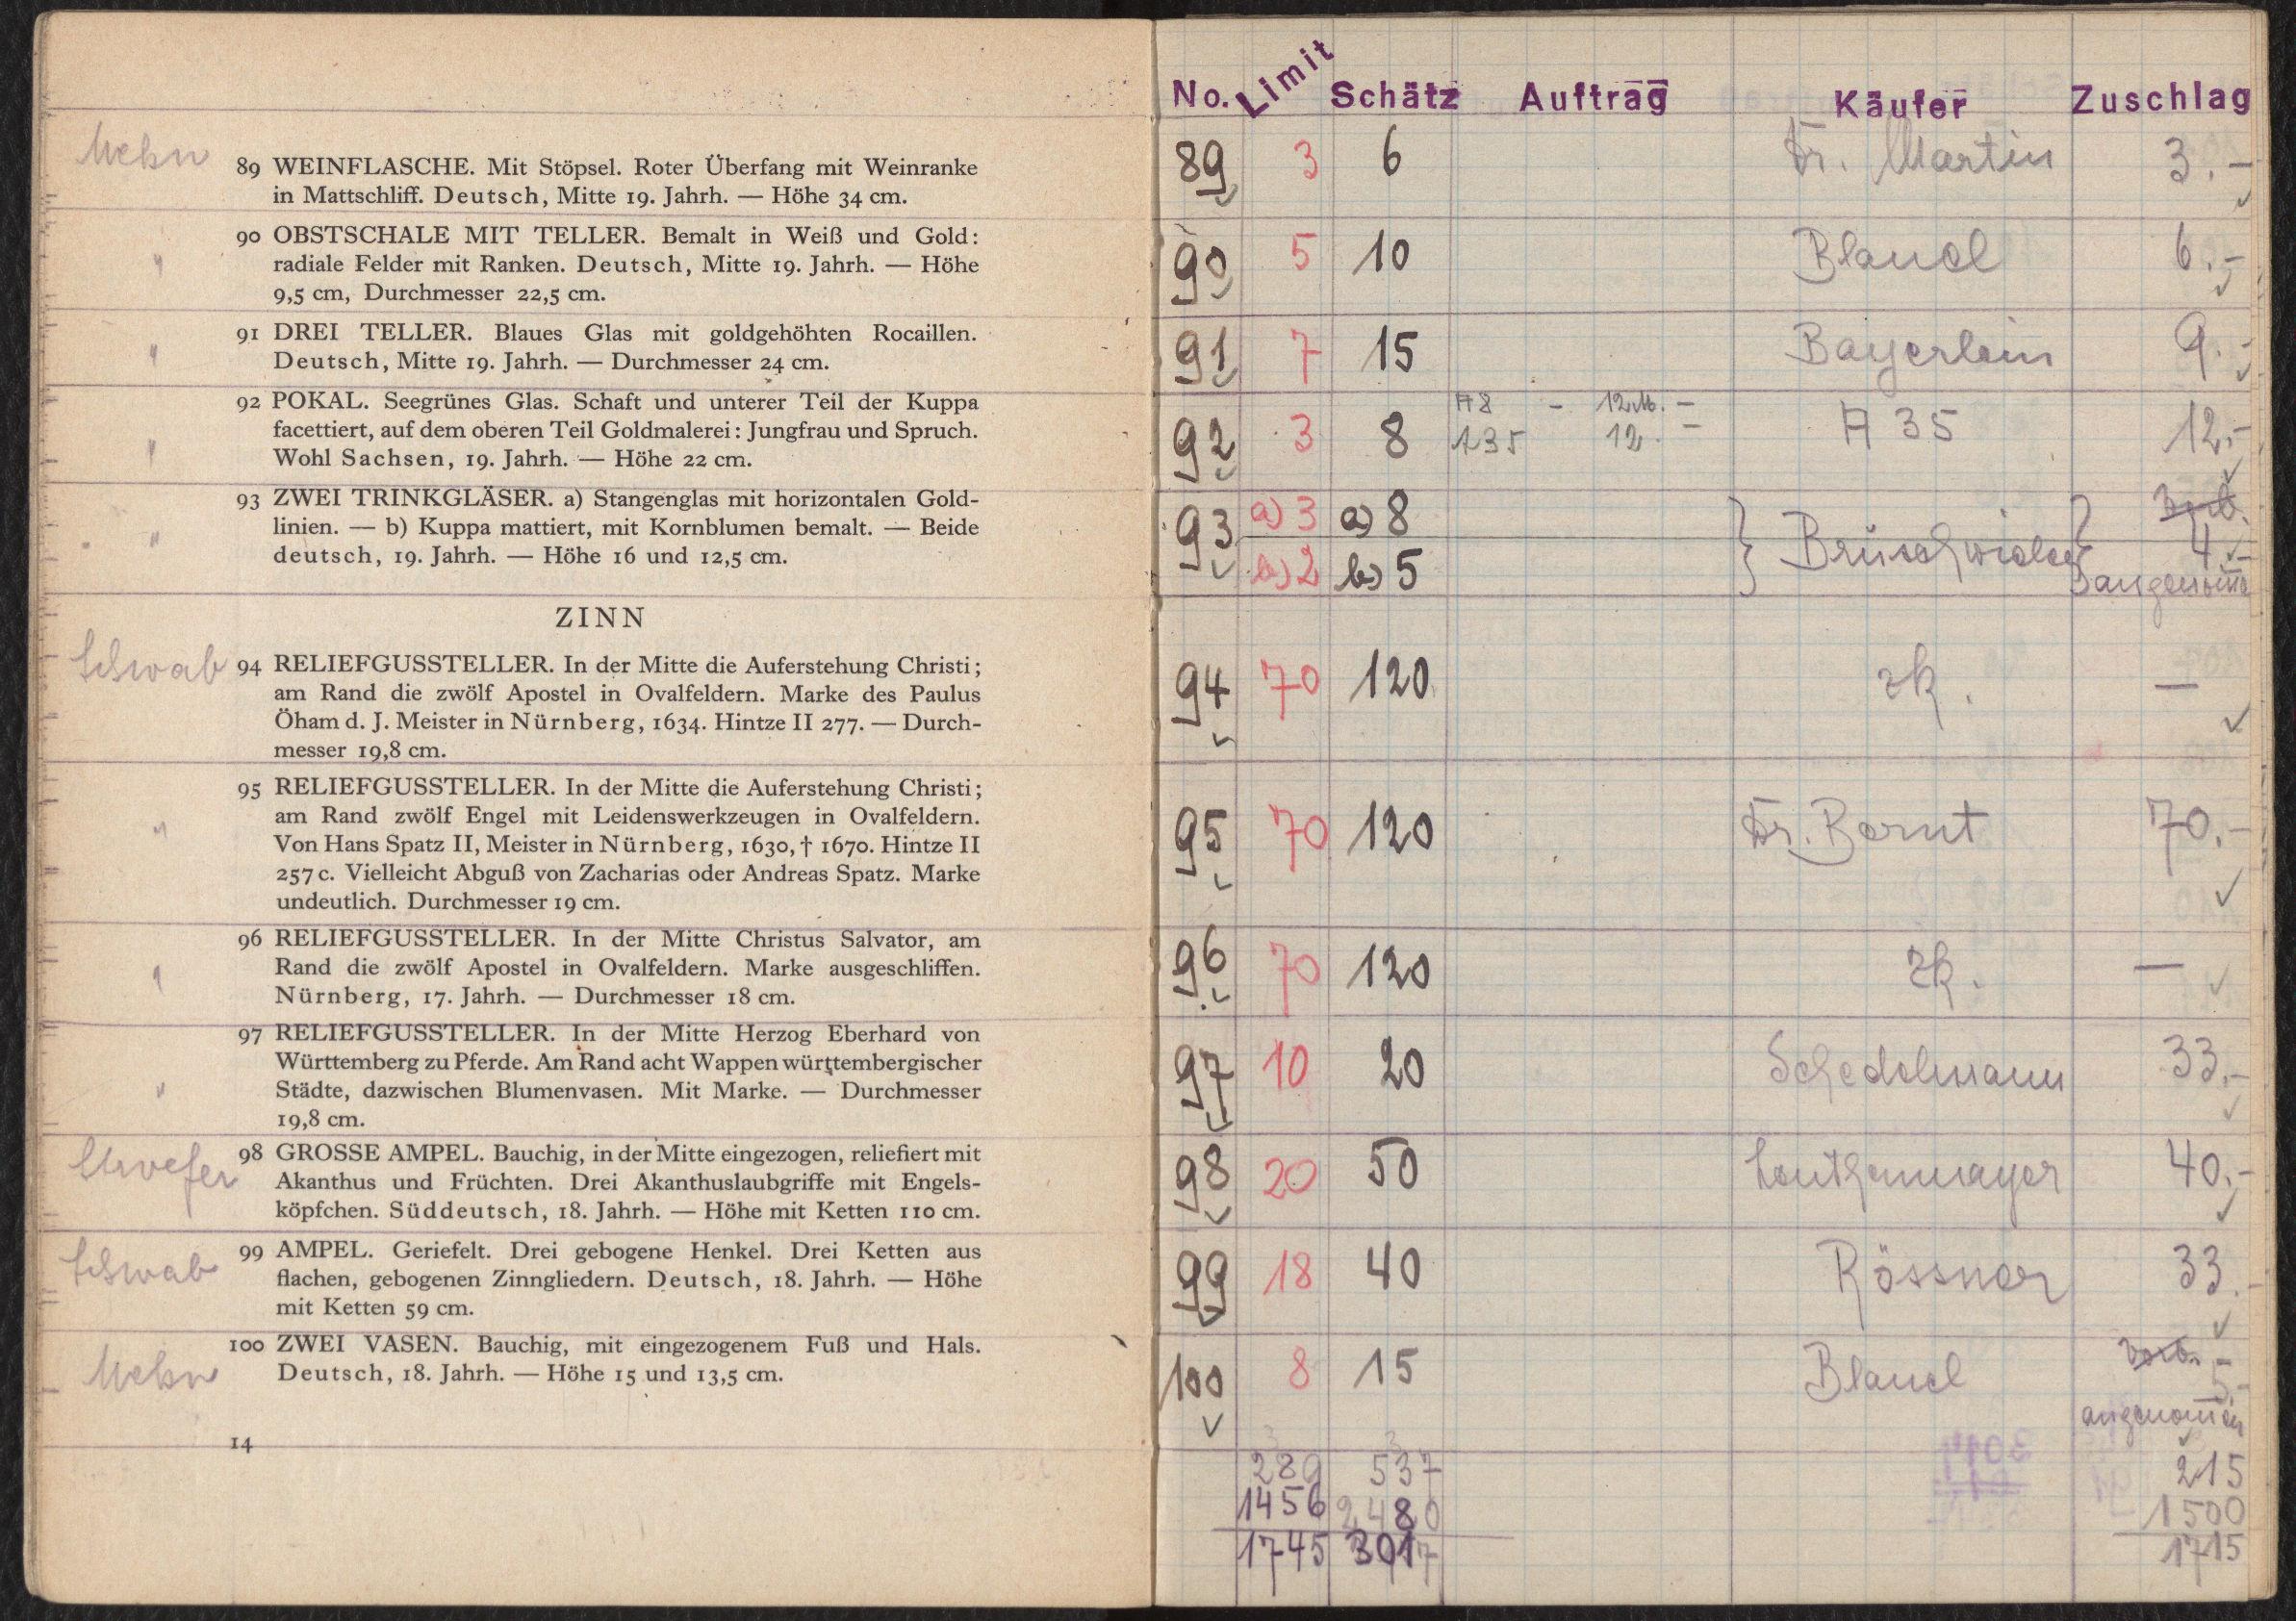 Mehn
89 WEINFLASCHE. Mit Stöpsel. Roter Überfang mit Weinranke
in Mattschliff. Deutsch, Mitte 19. Jahrh. — Höhe 34 cm.
" 90 OBSTSCHALE MIT TELLER. Bemalt in Weiß und Gold:
radiale Felder mit Ranken. Deutsch, Mitte 19. Jahrh. — Höhe
9,5 cm, Durchmesser 22,5 cm.
" 91 DREI TELLER. Blaues Glas mit goldgehöhten Rocaillen.
Deutsch, Mitte 19. Jahrh. — Durchmesser 24 cm.
" 92 POKAL. Seegrünes Glas. Schaft und unterer Teil der Kuppa
facettiert, auf dem oberen Teil Goldmalerei: Jungfrau und Spruch.
Wohl Sachsen, 19. Jahrh. — Höhe 22 cm.
" 93 ZWEI TRINKGLÄSER. a) Stangenglas mit horizontalen Gold-
linien. — b) Kuppa mattiert, mit Kornblumen bemalt. — Beide
deutsch, 19. Jahrh. — Höhe 16 und 12,5 cm.
ZINN
Schwab 94 RELIEFGUSSTELLER. In der Mitte die Auferstehung Christi;
am Rand die zwölf Apostel in Ovalfeldern. Marke des Paulus
Öham d. J. Meister in Nürnberg, 1634. Hintze II 277. — Durch-
messer 19,8 cm.
" 95 RELIEFGUSSTELLER. In der Mitte die Auferstehung Christi;
am Rand zwölf Engel mit Leidenswerkzeugen in Ovalfeldern.
Von Hans Spatz II, Meister in Nürnberg, 1630, † 1670. Hintze II
257 c. Vielleicht Abguß von Zacharias oder Andreas Spatz. Marke
undeutlich. Durchmesser 19 cm.
" 96 RELIEFGUSSTELLER. In der Mitte Christus Salvator, am
Rand die zwölf Apostel in Ovalfeldern. Marke ausgeschliffen.
Nürnberg, 17. Jahrh. — Durchmesser 18 cm.
" 97 RELIEFGUSSTELLER. In der Mitte Herzog Eberhard von
Württemberg zu Pferde. Am Rand acht Wappen württembergischer
Städte, dazwischen Blumenvasen. Mit Marke. — Durchmesser
19,8 cm.
98 GROSSE AMPEL. Bauchig, in der Mitte eingezogen, reliefiert mit
Akanthus und Früchten. Drei Akanthuslaubgriffe mit Engels-
köpfchen. Süddeutsch, 18. Jahrh. — Höhe mit Ketten 110 cm.
Schwab 99 AMPEL. Geriefelt. Drei gebogene Henkel. Drei Ketten aus
flachen, gebogenen Zinngliedern. Deutsch, 18. Jahrh. — Höhe
mit Ketten 59 cm.
Mehn 100 ZWEI VASEN. Bauchig, mit eingezogenem Fuß und Hals.
Deutsch, 18. Jahrh. — Höhe 15 und 13,5 cm.
14
No. Limit Schätz Auftrag Käufer Zuschlag
89 3 6 Dr. Martin 3.–
90 5 10 Blauel 6.–
91 7 15 Bayerlein 9.–
92 3 8 A 8 – 12 M. – A 35 12.–
135 12. –
93 a) 3 a) 8 vorb.
b) 2 b) 5 4.–
angenomen
94 70 120 zk. —
95 70 120 Dr. Bernt 70.–
96 70 120 zk. —
97 10 20 Schedelmann 33.–
98 20 50 Leuthenmayer 40.–
99 18 40 Rössner 33.–
100 8 15 Blauel vorb.
5.–
angenomen
289 537 215
1456 2480 1500
1745 3017 1715